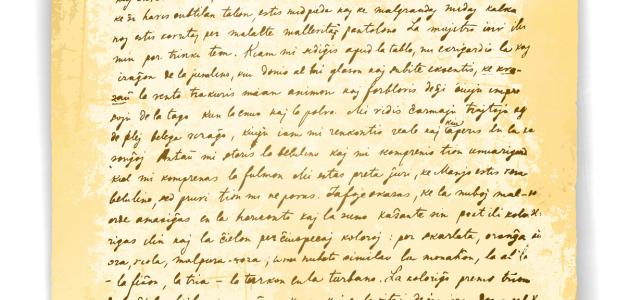 ke ŝi havis subtilan talon, estis nudpieda kaj ke malgrandaj nudaj kalka
noj estis kovritaj per malalte mallevitaj pantalono La majstro
min por trinki teon. Kiam mi sidiĝis apud la tablo, mi ekrigardis la viz
aĝon de la junulino, kiu donis al mi glason kaj subite eksentis, ke kva-
zaŭ la vento trakuris mian animon kaj forblovis de ĝi ĉiujn impre
sojn de la tago kun la enuo kaj la polvo. Mi vidis ĉarmajn trajtojn
de plej belega vizaĝo, kiujn iam mi renkontis reale kaj kiu aperis en la
sonĝoj Antaŭ mi staris la belulino kaj mi komprenis tion unuarigarde
kiel mi komprenas la fulmon Mi estas preta ĵuri, ke Manjo estis vera
belulino, sed pruvi tion mi ne povas. Iafoje okazas, ke la nuboj mal
orde amasiĝas en la horizonto kaj la suno kaŝante sin post ili kolo
rigas ilin kaj la ĉielon per ĉiuspecaj koloroj: per skarlata, oranĝa
ora, viola, malpura-roza; unu nubeto similas la monaĥon, la
- la fiŝon, la tria - la turkon en la turbano. La koloriĝo prenis